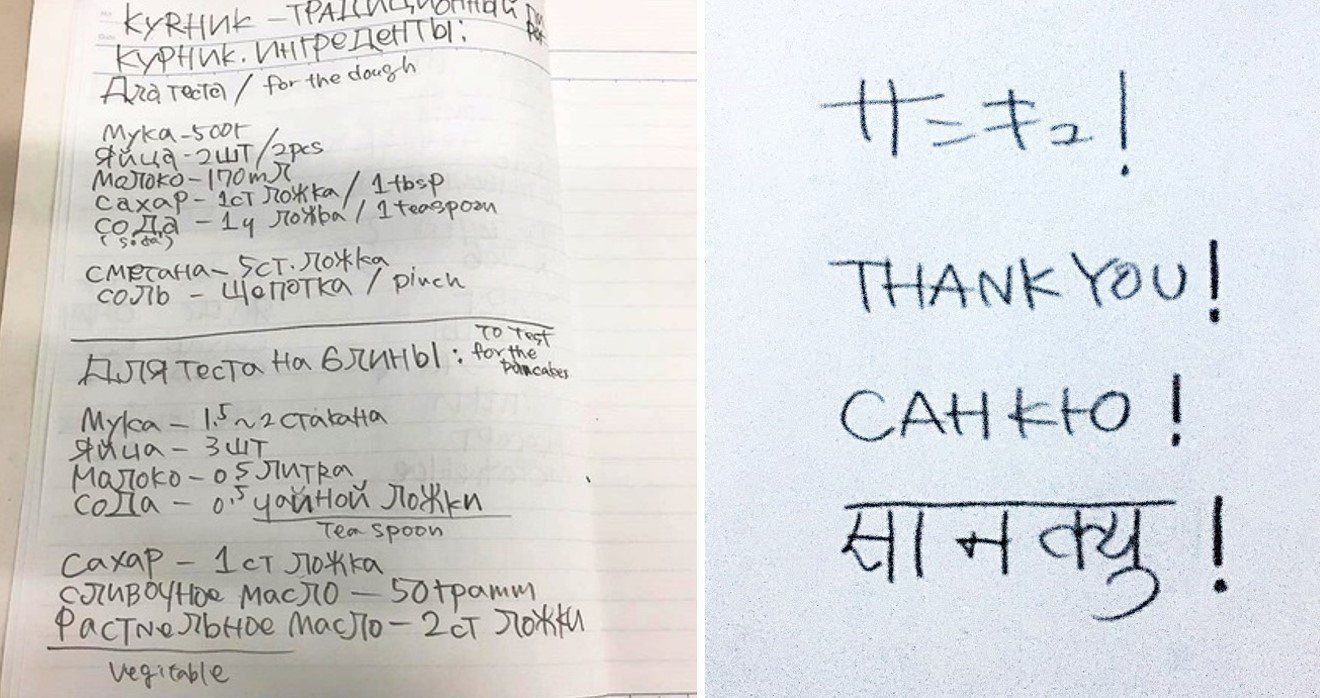 КУRНИК - ТРАДИЦИОННЫЙ
КУРНИК. ИНГРЕДЕНТЫ:
Для теста / for the dough
Мука - 500г
Яйца - 2 шт / 2pcs
Молоко - 170 мл
Сахар - 1 ст ложка / 1 tbsp
Сода - 1 ч ложва / 1 teaspoon
(soda)
сметана - 5 ст. ложка
соль - щепотка / pinch
Для теста на блины: TO TEST for the pancakes
Мука - 1.5 ~ 2 стакана
Яйца - 3 шт
Молоко - 0.5 литRа
Сода - 0.5 чайной ложки
Tea spoon
Сахар - 1 ст ложка
сливочное масло - 50 грамм
РастNельное масло - 2 ст ложки
Vegitable
サニキュ!
THANK YOU!
САН КЮ!
सानक्यु!